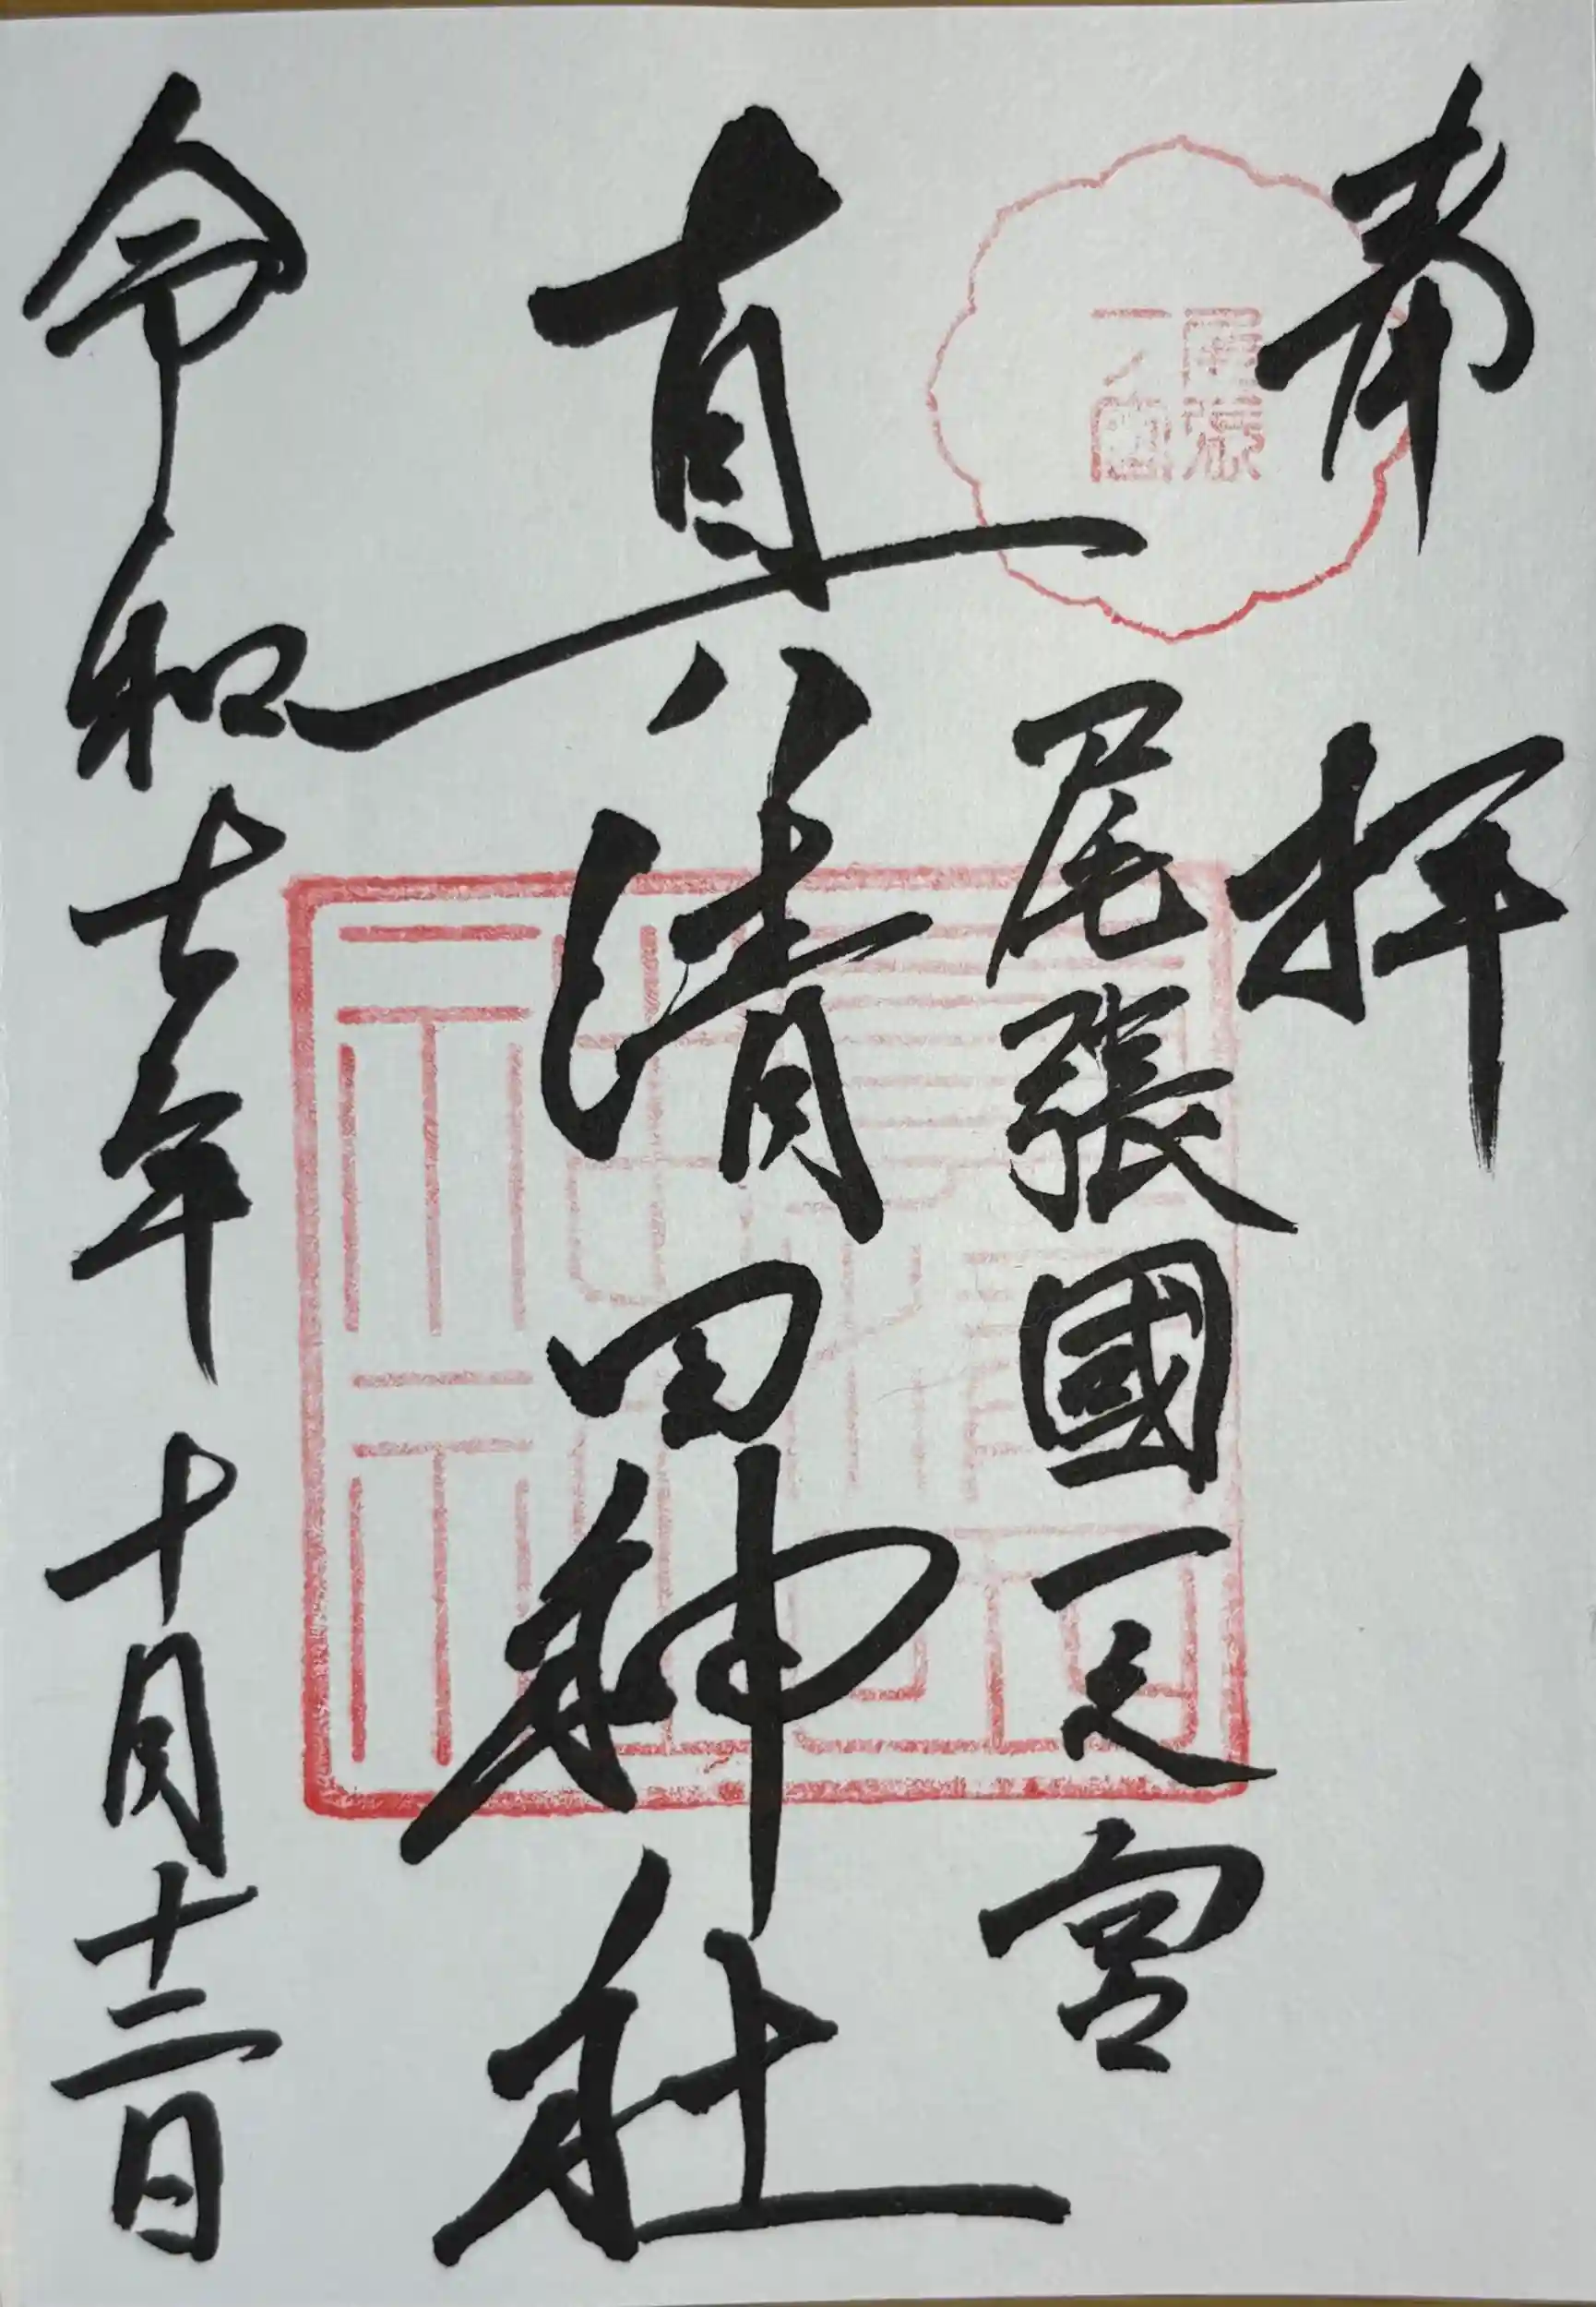 奉拝
尾張國一之宮
真清田神社
令和七年十月十二日
尾張
一宮